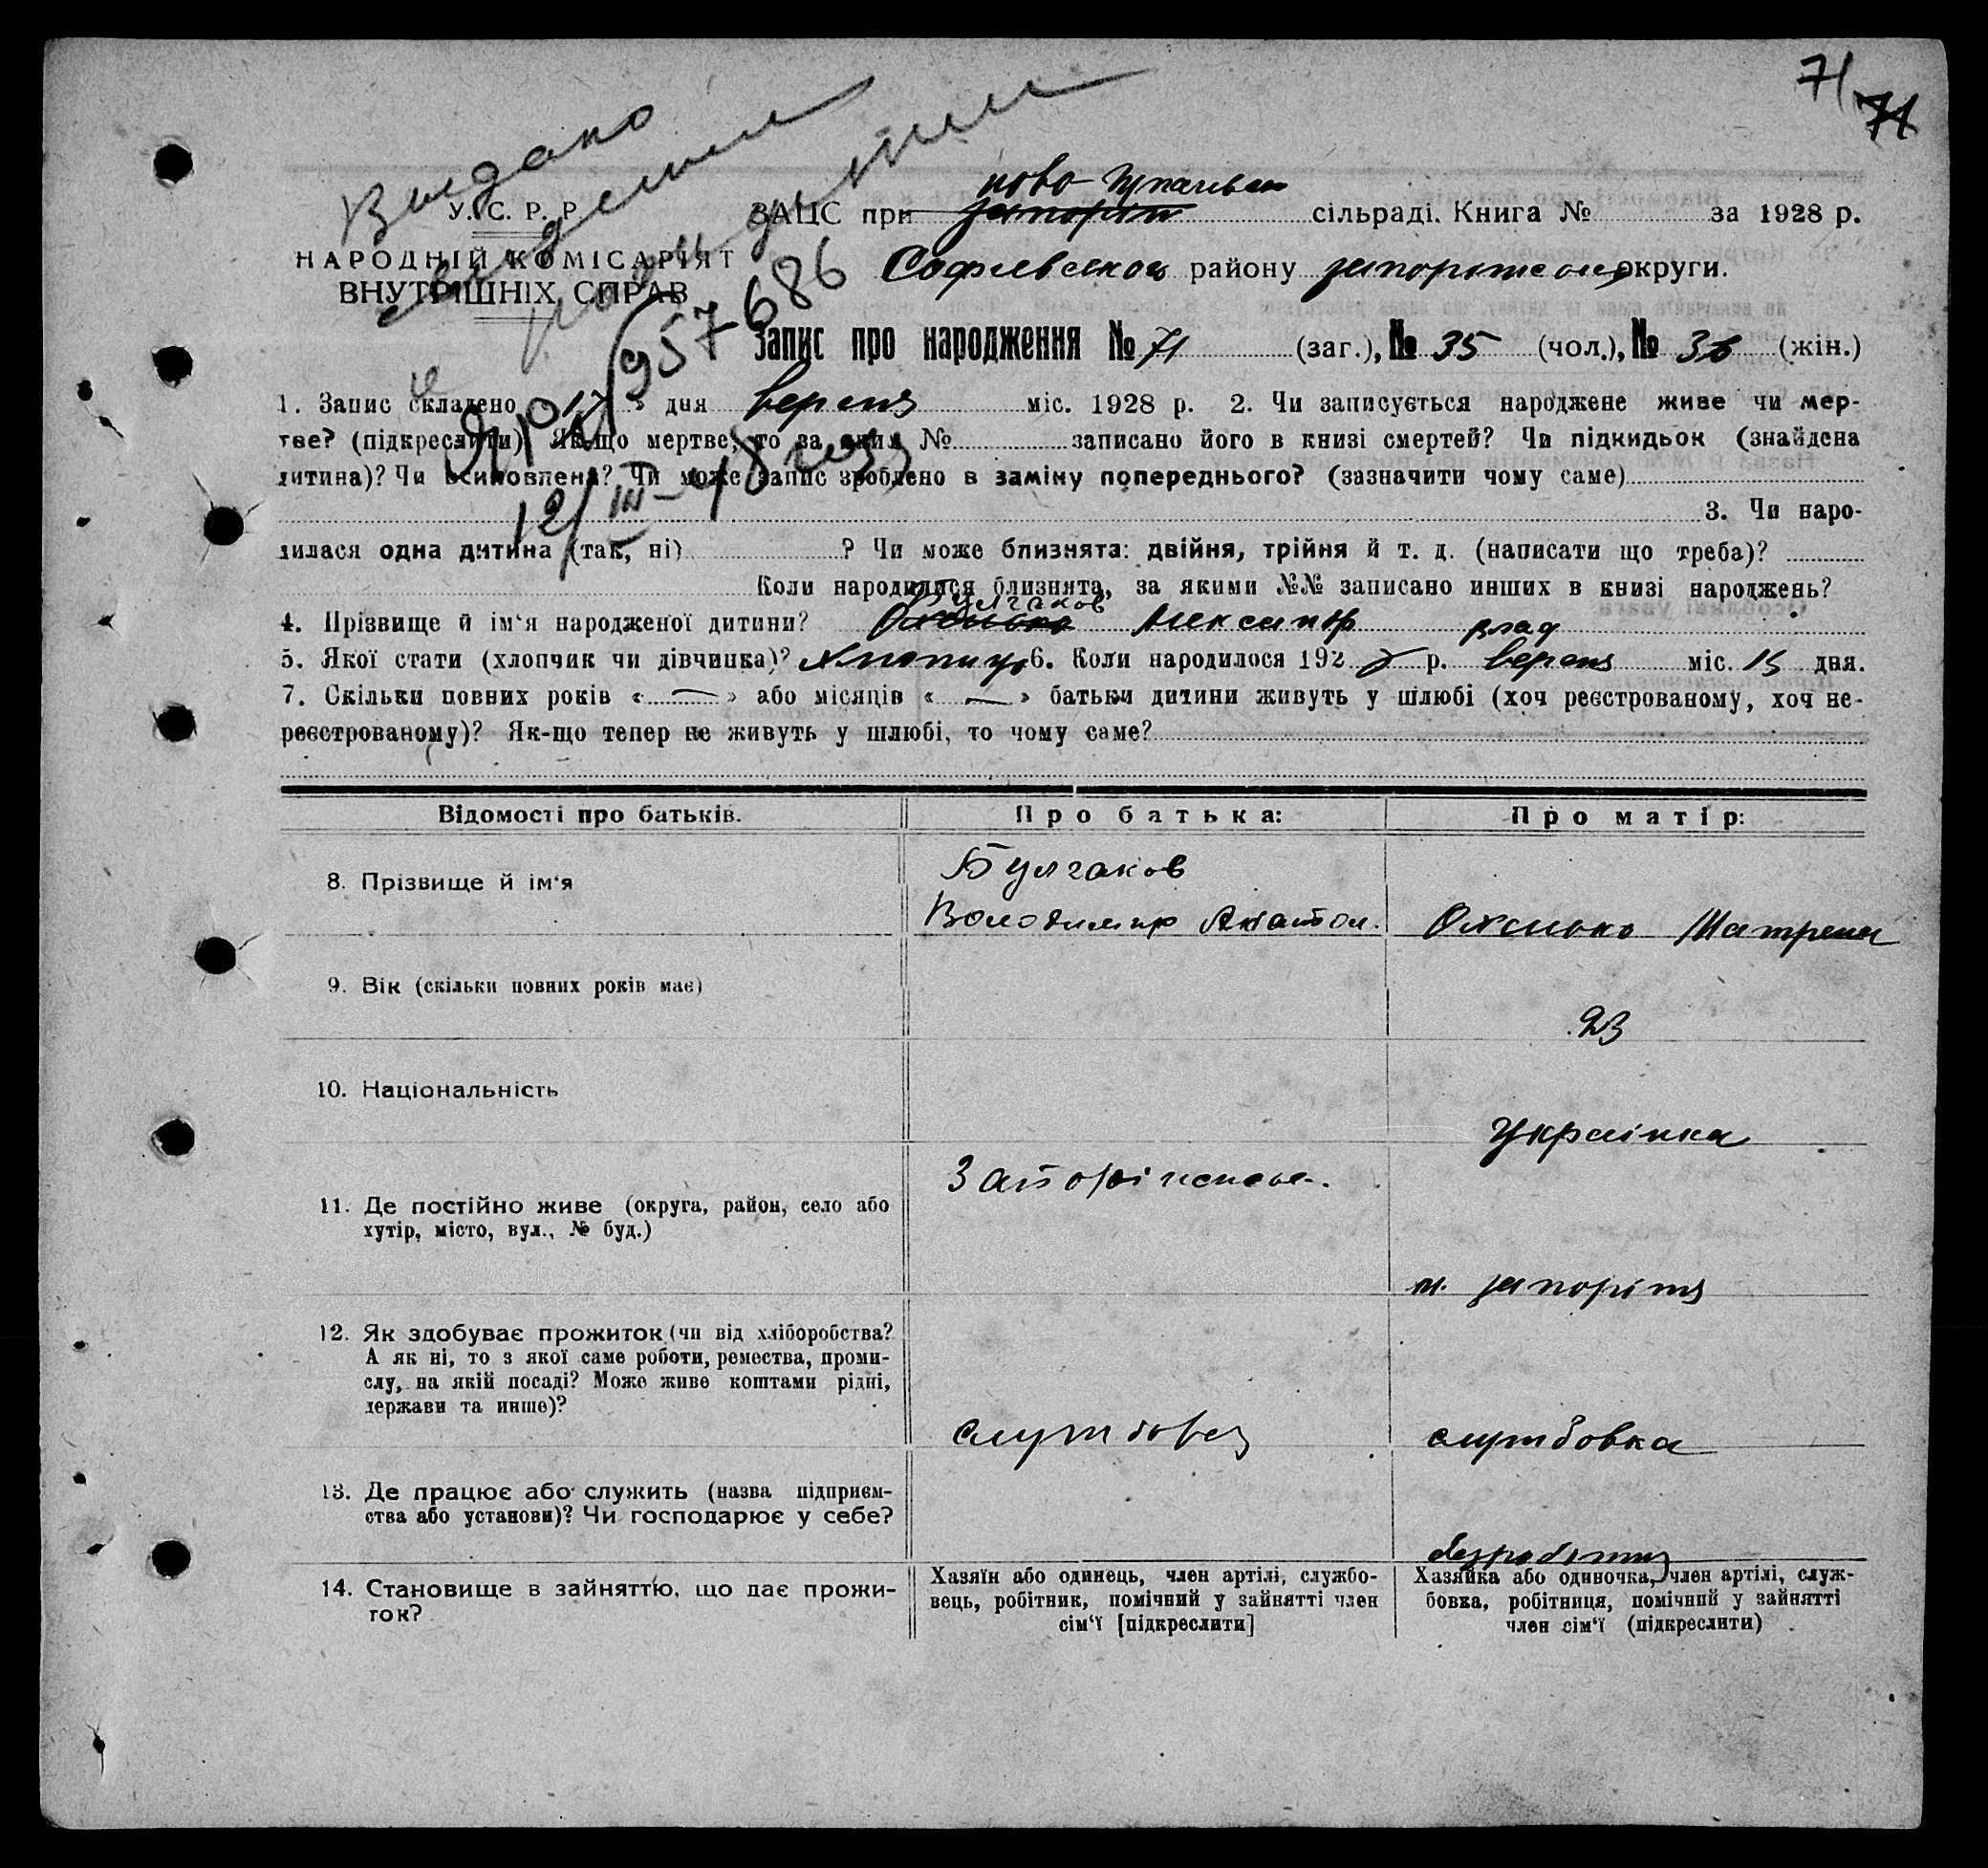 71
71
Выдано
У. С. Р. Р.
НАРОДНІЙ КОМІСАРІЯТ
ВНУТРІШНІХ СПРАВ
957686
12/III-48
ЗАЦС при сільраді. Книга № за 1928 р.
району округи.
Запис про народження № 71 (заг.), № 35 (чол.), № 36 (жін.)
1. Запис складено 17 » дня вересня міс. 1928 р. 2. Чи записується народжене живе чи мер-
тве? (підкреслити) Як-що мертве, то за яким № записано його в книзі смертей? Чи підкидьок (знайдена
дитина)? Чи всиновлена? Чи може запис зроблено в заміну попереднього? (зазначити чому саме)
3. Чи наро-
дилася одна дитина (так, ні) ? Чи може близнята: двійня, трійня й т. д. (написати що треба)?
Коли народилися близнята, за якими №№ записано инших в книзі народжень?
Булгаков
4. Прізвище й ім‘я народженої дитини? Александр влад
5. Якої стати (хлопчик чи дівчинка)? хлопець 6. Коли народилося 192 р. вересня міс. 15 дня.
7. Скільки повних років « — » або місяців « — » батьки дитини живуть у шлюбі (хоч реєстрованому, хоч не-
реєстрованому)? Як-що тепер не живуть у шлюбі, то чому саме?
Відомості про батьків. Про батька: Про матір:
8. Прізвище й ім‘я Булгаков
Володимир Анатол. Матрена
9. Вік (скільки повних років має) 23
10. Національність Українка
11. Де постійно живе (округа, район, село або
хутір, місто, вул., № буд.)
м. Запоріжжя
12. Як здобуває прожиток (чи від хліборобства?
А як ні, то з якої саме роботи, ремества, проми-
слу, на якій посаді? Може живе коштами рідні,
держави та инше)?
службовець службовка
13. Де працює або служить (назва підприєм-
ства або установи)? Чи господарює у себе?
безробітня
14. Становище в зайняттю, що дає прожи-
ток?
Хазяїн або одинець, член артілі, службо-
вець, робітник, помічний у зайнятті член
сім‘ї [підкреслити]
Хазяйка або одиночка, член артілі, служ-
бовка, робітниця, помічний у зайнятті
член сім‘ї (підкреслити)